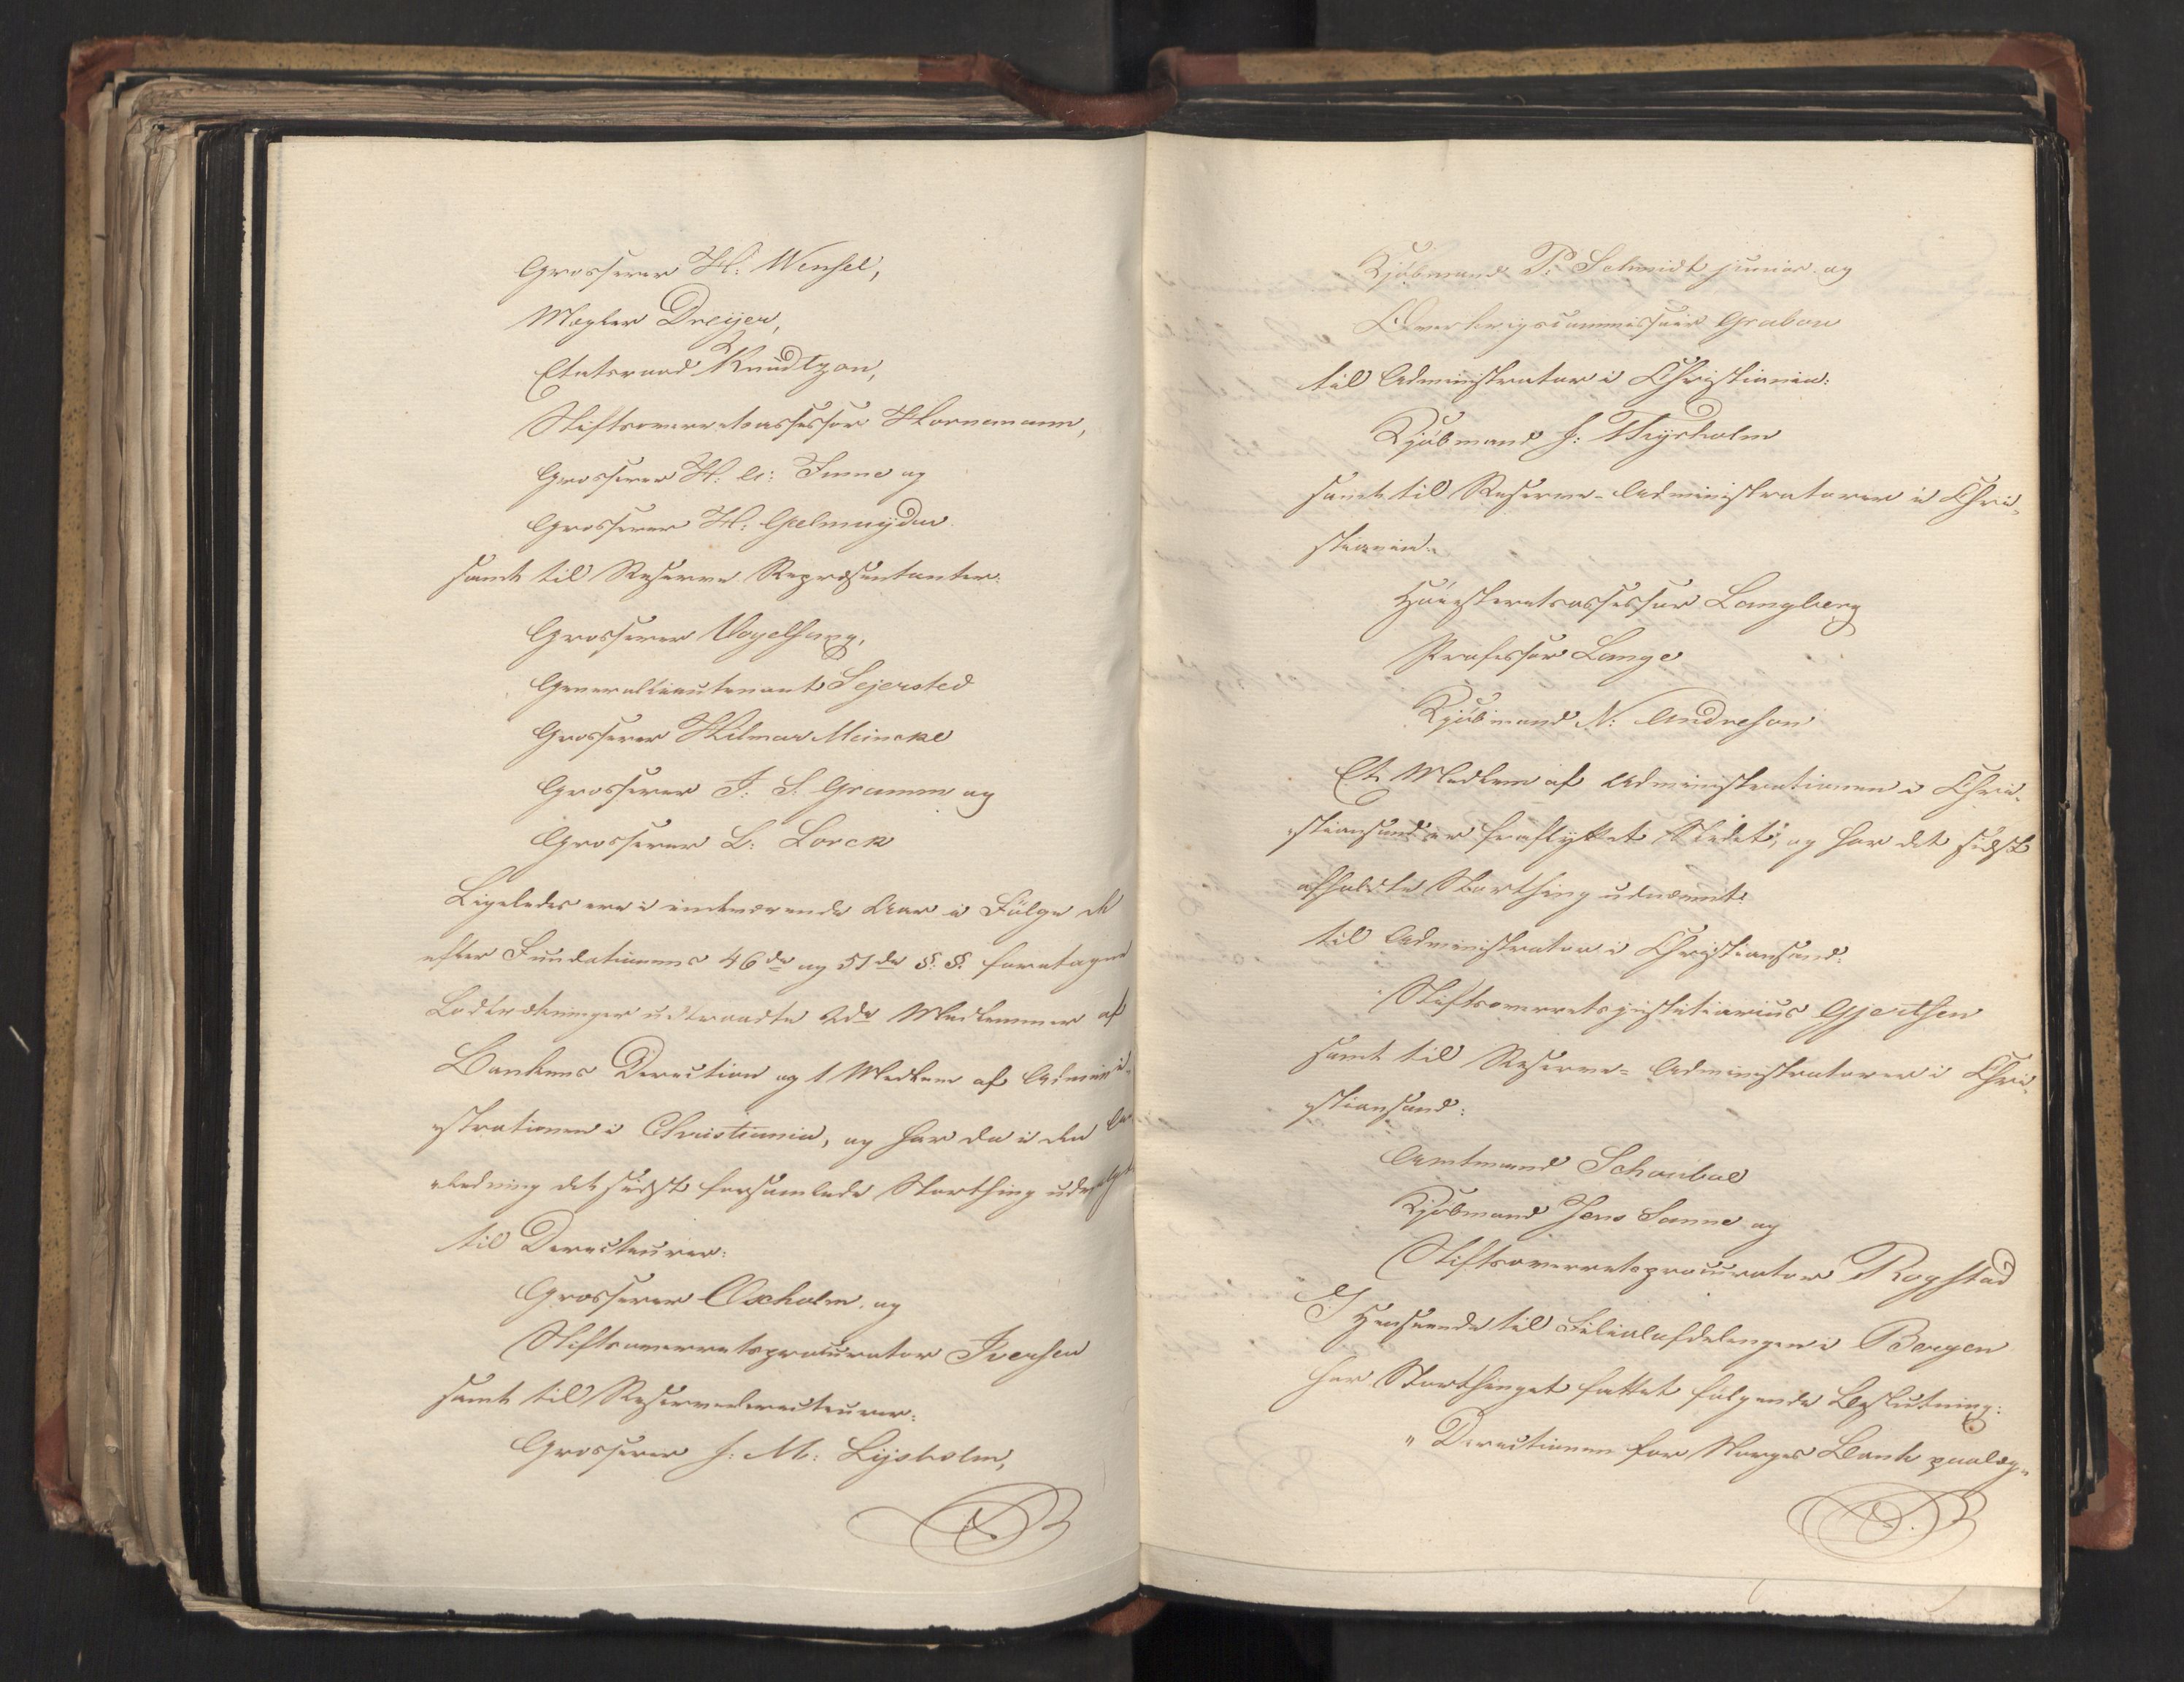 Grosserer H: Wensel,
Mægler Dreijer,
Etatsraad Knudtzon,
Stiftsoverretsassessor Hornemann,
Grosserer H. A: Finne og
Grosserer H. Gelmuyden
samt til Reserve Repræsentanter:
Grosserer Vogelsang,
Generallieutenant Sejersted
Grosserer Hilmar Meincke
Grosserer J. S. Gramm og
Grosserer L: Lorck
Ligeledes ere i indeværende Aar i Følge de
efter Fundationens 46de og 51de §. §. foretagne
Lodtrækninger udtraadte 2de Medlemmer af
Bankens Direction og 1 Medlem af Admini-
strationen i Christiania, og har da i den An-
ledning det sidst forsamlede Storthing udvalgt
til Directeurer:
Grosserer Oxholm og
Stiftsoverretsprocurator Iversen
samt til Reservedirecteurer:
Grosserer J: M: Lysholm,
Kjøbmand P: Schmidt junior og
Overkrigscommissair Grabow
til Administrator i Christiania:
Kjøbmand J: Thrysholm
samt til Reserve-Administratorer i Chri-
stiania:
Høiesteretsassessor Langberg
Professor Lange
Kjøbmand N: Andresen
Et Medlem af Administrationen i Chri-
stiansand er fraflyttet Stedet, og har det sidst
afholdte Storthing udnævnt
til Administrator i Christiansand:
Stiftsoverretsjustitiarius Gjertsen
samt til Reserve-Administratorer i Chri-
stiansand:
Amtmand Schouboe
Kjøbmand Jens Sanne og
Stiftsoverretsprocurator Rogstad
I Henseende til Filialafdelingen i Bergen
har Storthinget fattet følgende Beslutning:
"Directionen for Norges Bank paalæg-